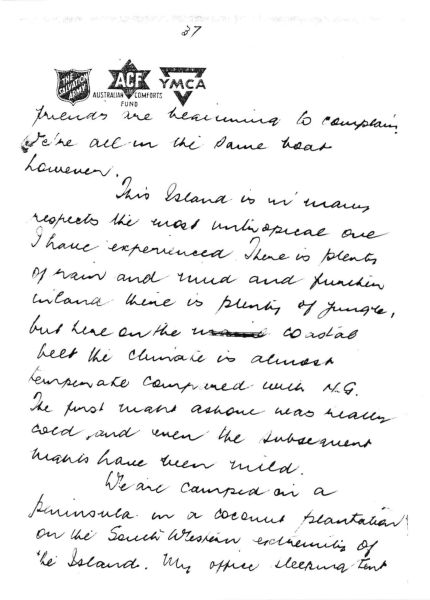 37
THE SALVATION ARMY
ACF
AUSTRALIAN COMFORTS FUND
YMCA
friends are beginning to complain.
We're all in the same boat
however.
This Island is in many
respects the most untropical one
I have experienced. There is plenty
of rain and mud and further
inland there is plenty of jungle,
but here on the coastal
belt the climate is almost
temperate compared with N.G.
The first night ashore was really
cold, and even the subsequent
nights have been mild.
We are camped on a
peninsula in a coconut plantation
on the South Western extremity of
the Island. My office sleeping tent